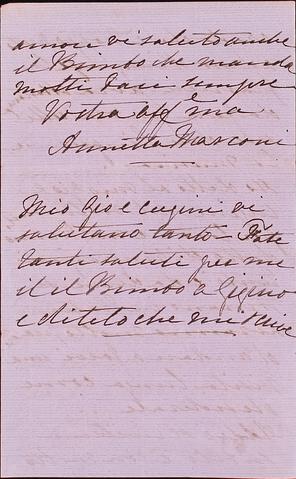 amori vi saluto anche
il Bimbo che manda
molti baci sempre
Vostra aff.ma
Annetta Marconi
Mio Zio e cugini vi
salutano tanto Fate
tanti saluti per me
e il Bimbo a Gigino
e ditelo che mi scrive